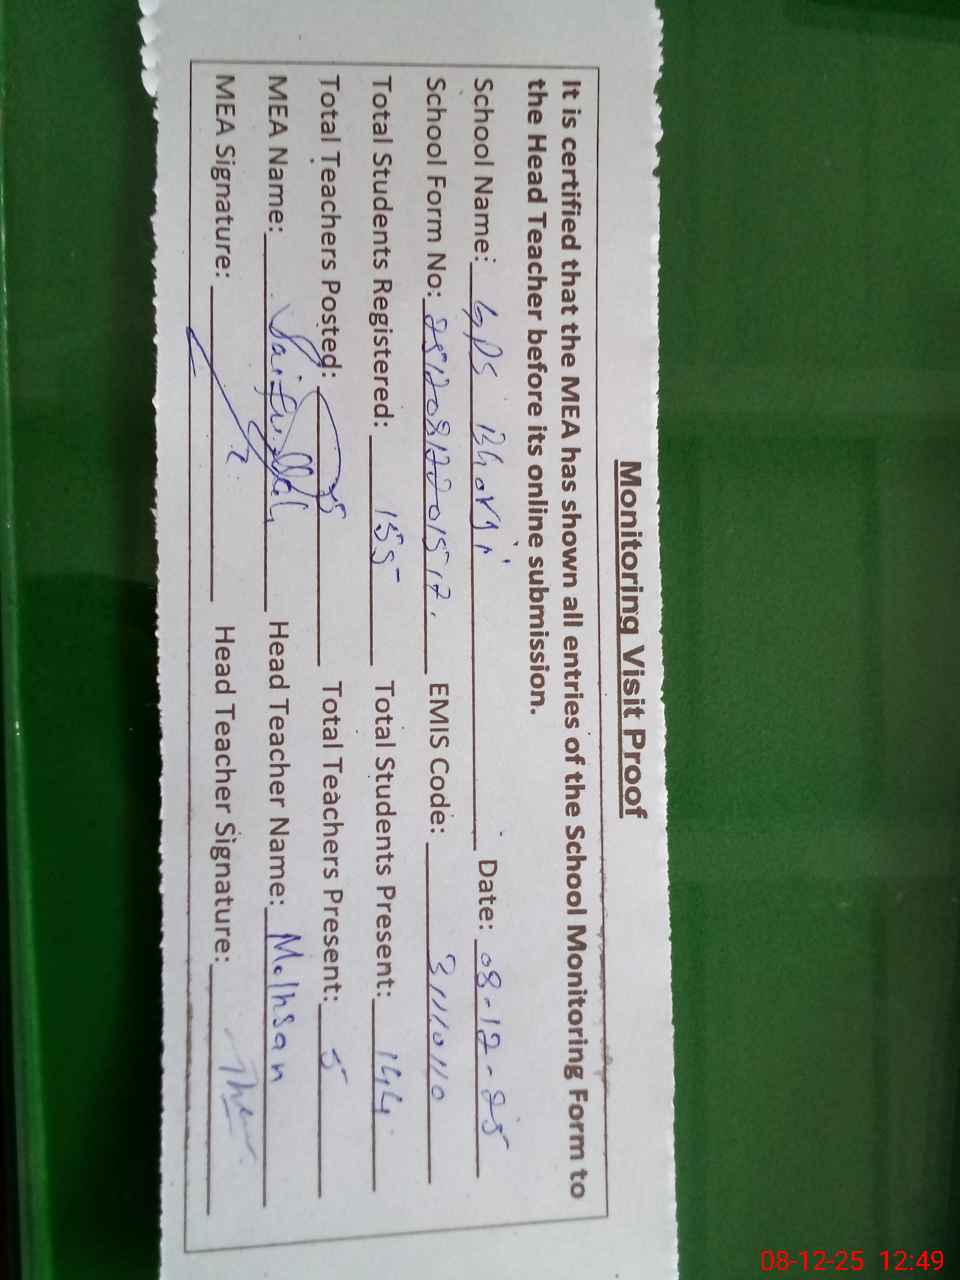 Monitoring Visit Proof
It is certified that the MEA has shown all entries of the School Monitoring Form to
the Head Teacher before its online submission.
School Name: GPS Bhorgi Date: 08-12-25
School Form No: EMIS Code:
Total Students Registered: 155 Total Students Present: 144
Total Teachers Posted: 5 Total Teachers Present: 5
MEA Name: Saifullah Head Teacher Name: M. Ihsan
MEA Signature: Head Teacher Signature:
08-12-25 12:49